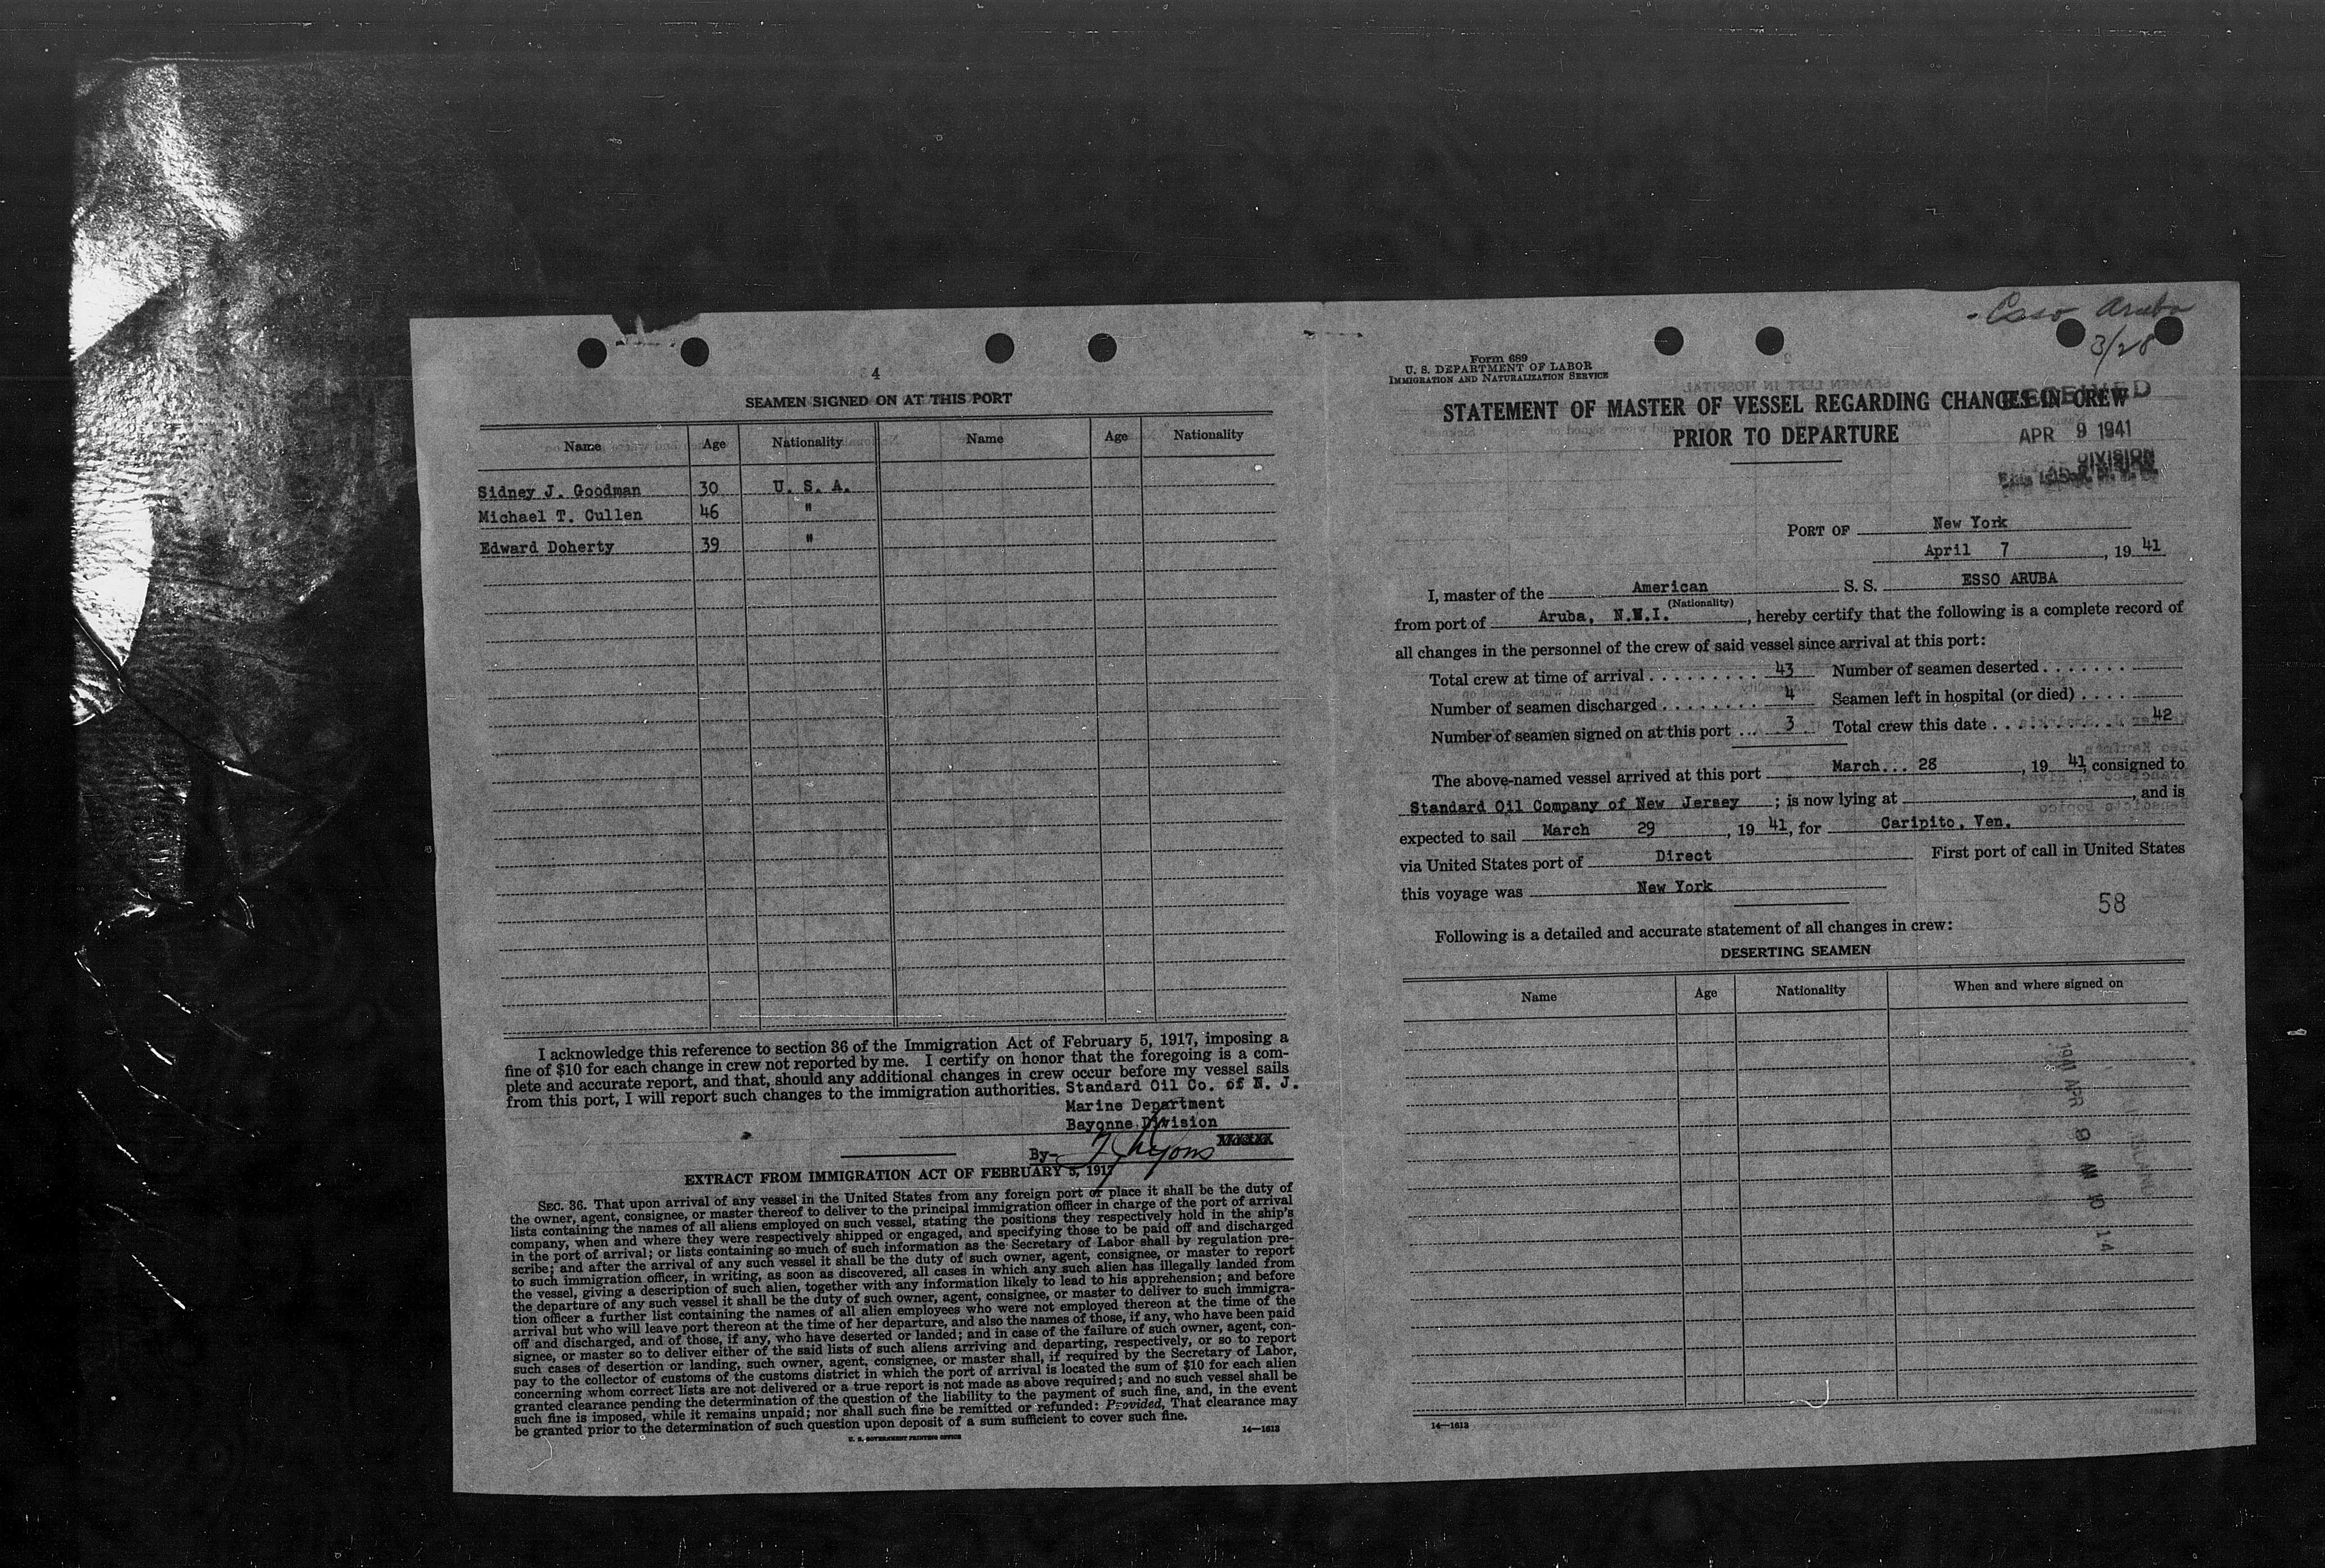 4
SEAMEN SIGNED ON AT THIS PORT
Name Age Nationality Name Age Nationality
Sidney J. Goodman 30 U. S. A.
Michael T. Cullen 46 "
Edward Doherty 39 "
I acknowledge this reference to section 36 of the Immigration Act of February 5, 1917, imposing a
fine of $10 for each change in crew not reported by me. I certify on honor that the foregoing is a com-
plete and accurate report, and that, should any additional changes in crew occur before my vessel sails
from this port, I will report such changes to the immigration authorities. Standard Oil Co. of N. J.
Marine Department
Bayonne Division
By-
EXTRACT FROM IMMIGRATION ACT OF FEBRUARY 5, 1917
SEC. 36. That upon arrival of any vessel in the United States from any foreign port or place it shall be the duty of
the owner, agent, consignee, or master thereof to deliver to the principal immigration officer in charge of the port of arrival
lists containing the names of all aliens employed on such vessel, stating the positions they respectively hold in the ship's
company, when and where they were respectively shipped or engaged, and specifying those to be paid off and discharged
in the port of arrival; or lists containing so much of such information as the Secretary of Labor shall by regulation pre-
scribe; and after the arrival of any such vessel it shall be the duty of such owner, agent, consignee, or master to report
to such immigration officer, in writing, as soon as discovered, all cases in which any such alien has illegally landed from
the vessel, giving a description of such alien, together with any information likely to lead to his apprehension; and before
the departure of any such vessel it shall be the duty of such owner, agent, consignee, or master to deliver to such immigra-
tion officer a further list containing the names of all alien employees who were not employed thereon at the time of the
arrival but who will leave port thereon at the time of her departure, and also the names of those, if any, who have been paid
off and discharged, and of those, if any, who have deserted or landed; and in case of the failure of such owner, agent, con-
signee, or master so to deliver either of the said lists of such aliens arriving and departing, respectively, or so to report
such cases of desertion or landing, such owner, agent, consignee, or master shall, if required by the Secretary of Labor,
pay to the collector of customs of the customs district in which the port of arrival is located the sum of $10 for each alien
concerning whom correct lists are not delivered or a true report is not made as above required; and no such vessel shall be
granted clearance pending the determination of the question of the liability to the payment of such fine, and, in the event
such fine is imposed, while it remains unpaid; nor shall such fine be remitted or refunded: Provided, That clearance may
be granted prior to the determination of such question upon deposit of a sum sufficient to cover such fine.
U. S. GOVERNMENT PRINTING OFFICE 14—1613
Esso Aruba
3/28
Form 689
U. S. DEPARTMENT OF LABOR
IMMIGRATION AND NATURALIZATION SERVICE
STATEMENT OF MASTER OF VESSEL REGARDING CHANGES IN CREW
PRIOR TO DEPARTURE
RECEIVED
APR 9 1941
DIVISION
PORT OF New York
April 7, 19 41
I, master of the American S. S. ESSO ARUBA
(Nationality)
from port of Aruba, N.W.I., hereby certify that the following is a complete record of
all changes in the personnel of the crew of said vessel since arrival at this port:
Total crew at time of arrival . . . . . . . . . . 43 Number of seamen deserted . . . . . . .
Number of seamen discharged . . . . . . . . 4 Seamen left in hospital (or died) . . . .
Number of seamen signed on at this port . . . 3 Total crew this date . . . . . . . . . . . 42
The above-named vessel arrived at this port March 28, 19 41, consigned to
Standard Oil Company of New Jersey; is now lying at , and is
expected to sail March 29, 19 41, for Caripito, Ven.
via United States port of Direct First port of call in United States
this voyage was New York
58
Following is a detailed and accurate statement of all changes in crew:
DESERTING SEAMEN
Name Age Nationality When and where signed on
1941 APR 9 AM 10 14
14—1613